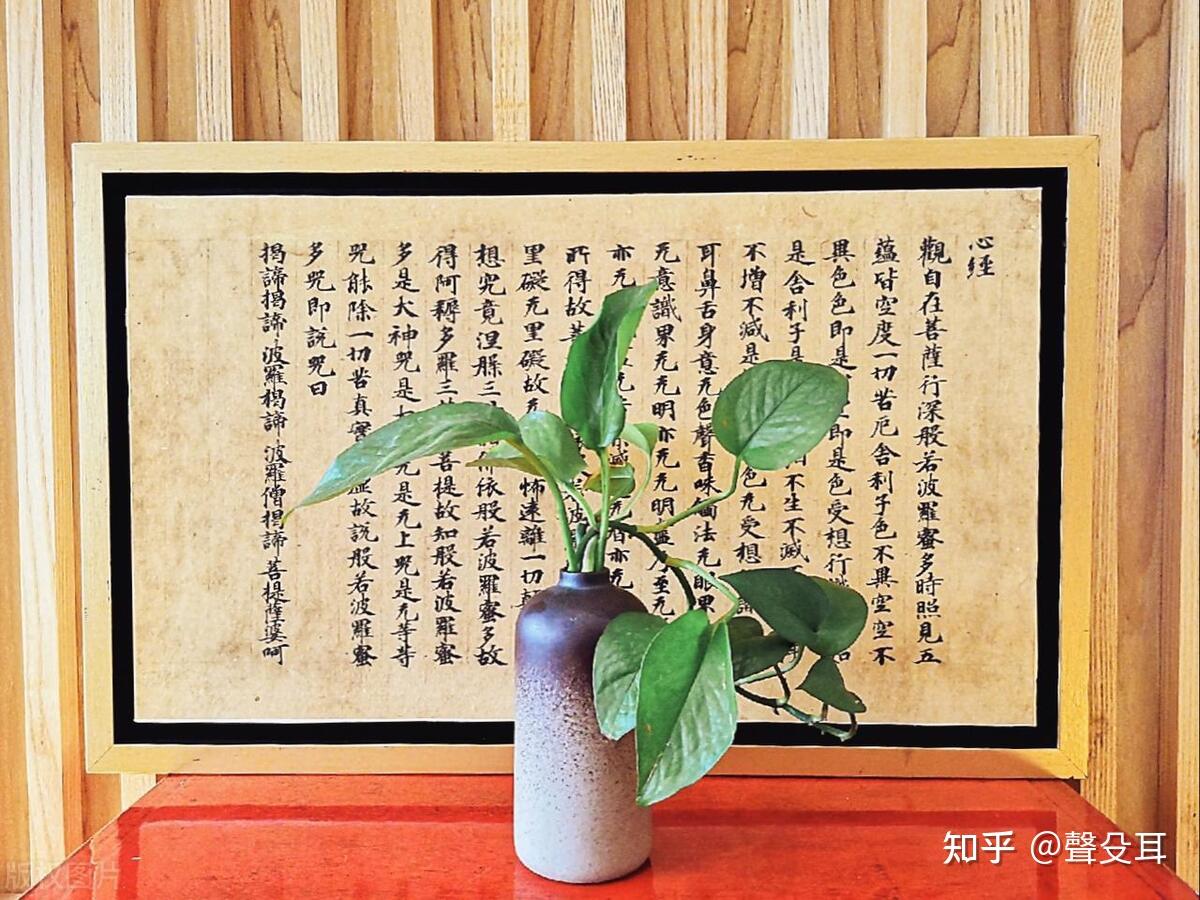 心經
觀自在菩薩行深般若波羅蜜多時照見五
蘊皆空度一切苦厄舍利子色不異空空不
異色色即是即是色受想行
是舍利子是不生不滅
不增不減是色无受想
耳鼻舌身意无色聲香味觸法无眼界
无意識界无无明亦无无明盡乃至无
亦无亦无
所得故菩
罣礙无罣礙故无怖遠離一切
想究竟涅槃三依般若波羅蜜多故
得阿耨多羅三菩提故知般若波羅蜜
多是大神咒是无上咒是无等等
咒能除一切苦真實虛故說般若波羅蜜
多咒即說咒曰
揭諦揭諦 波羅揭諦 波羅僧揭諦 菩提薩婆呵
知乎 @聲殳耳
版权图片